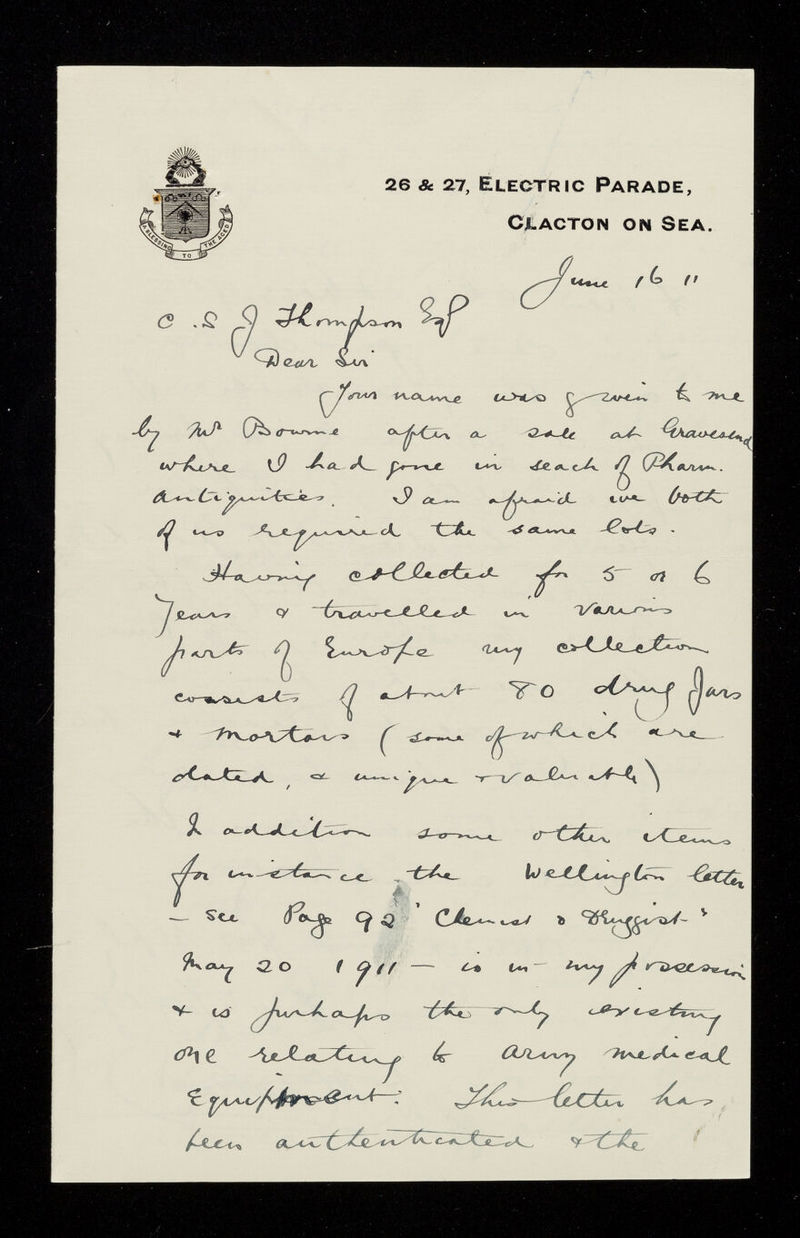 A BLESSING TO THE AGED
26 & 27, ELECTRIC PARADE,
CLACTON ON SEA.
June 16 11
C. S J Thompson Esq
Dear Sir
Your name was given to me
by Mr Bourne after a sale at Gravesend
where I had gone in seach of Pharm.
Antiquities. I am afraid we both
of us required the same lots.
Having collected for 5 or 6
years & travelled in various
parts of Europe my collection
consists of about 80 drug Jars
& Mortars (some of which are
dated, & unique & valuable)
In addition some other items
for instance the Wellington letter
- see Page 92 "Chemist & Druggist"
May 20 1911 - is in my possession
& is perhaps the only existing
one relating to Army medical
Equipment. This letter has
been authenticated & the